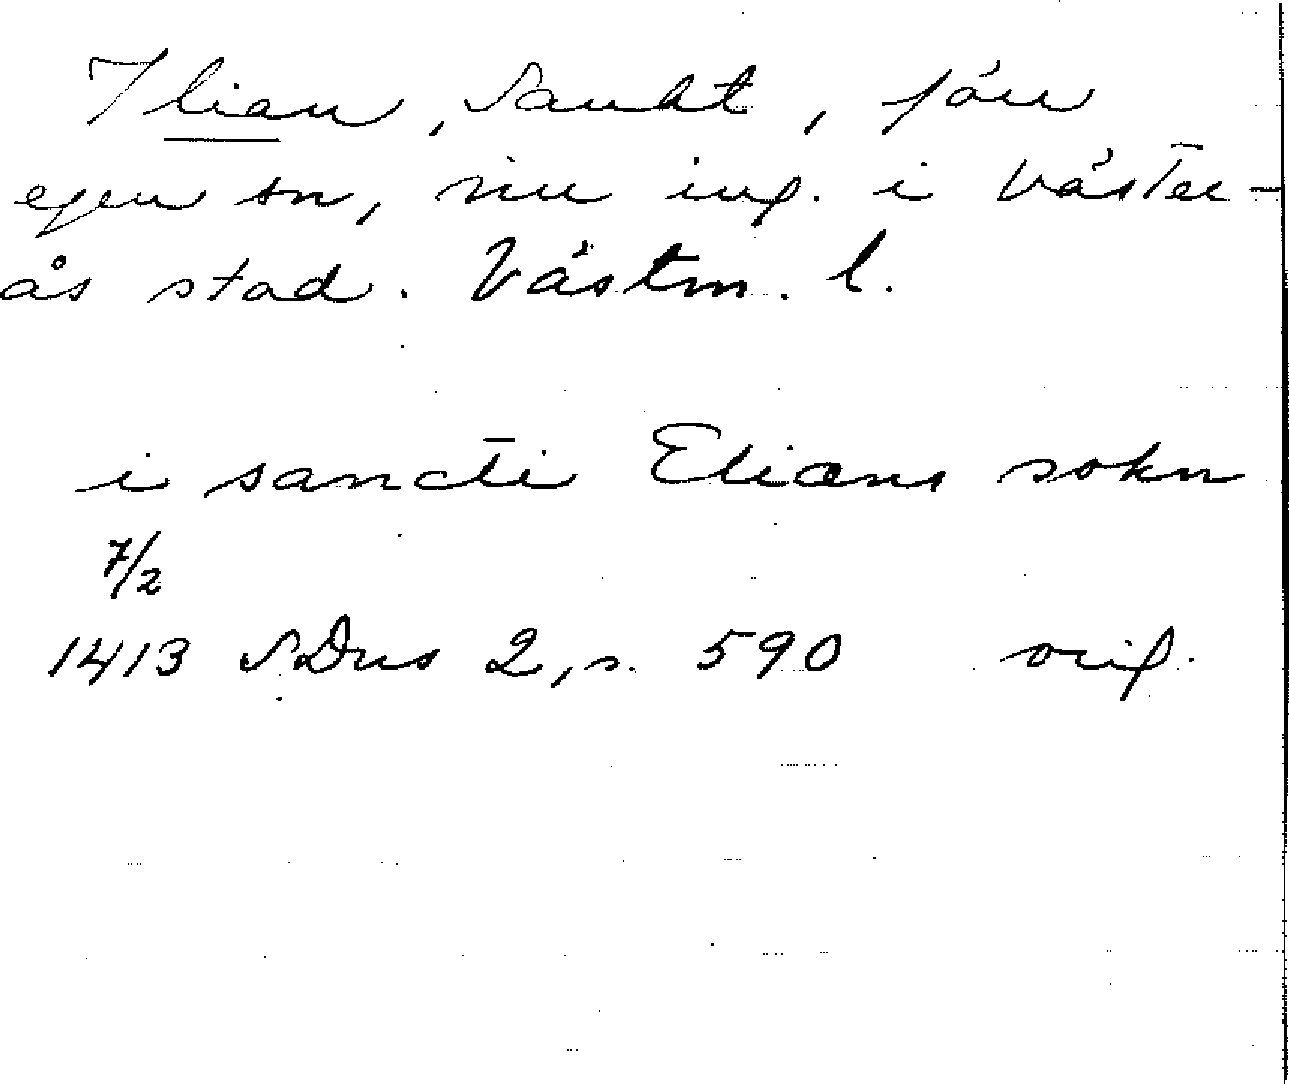 Ilian, Sankt, förr
egen sn, nu ing. i Väster-
ås stad. Västm. l.
i sancti Eliæns sokn
7/2
1413 SDns 2, s. 590 orig.